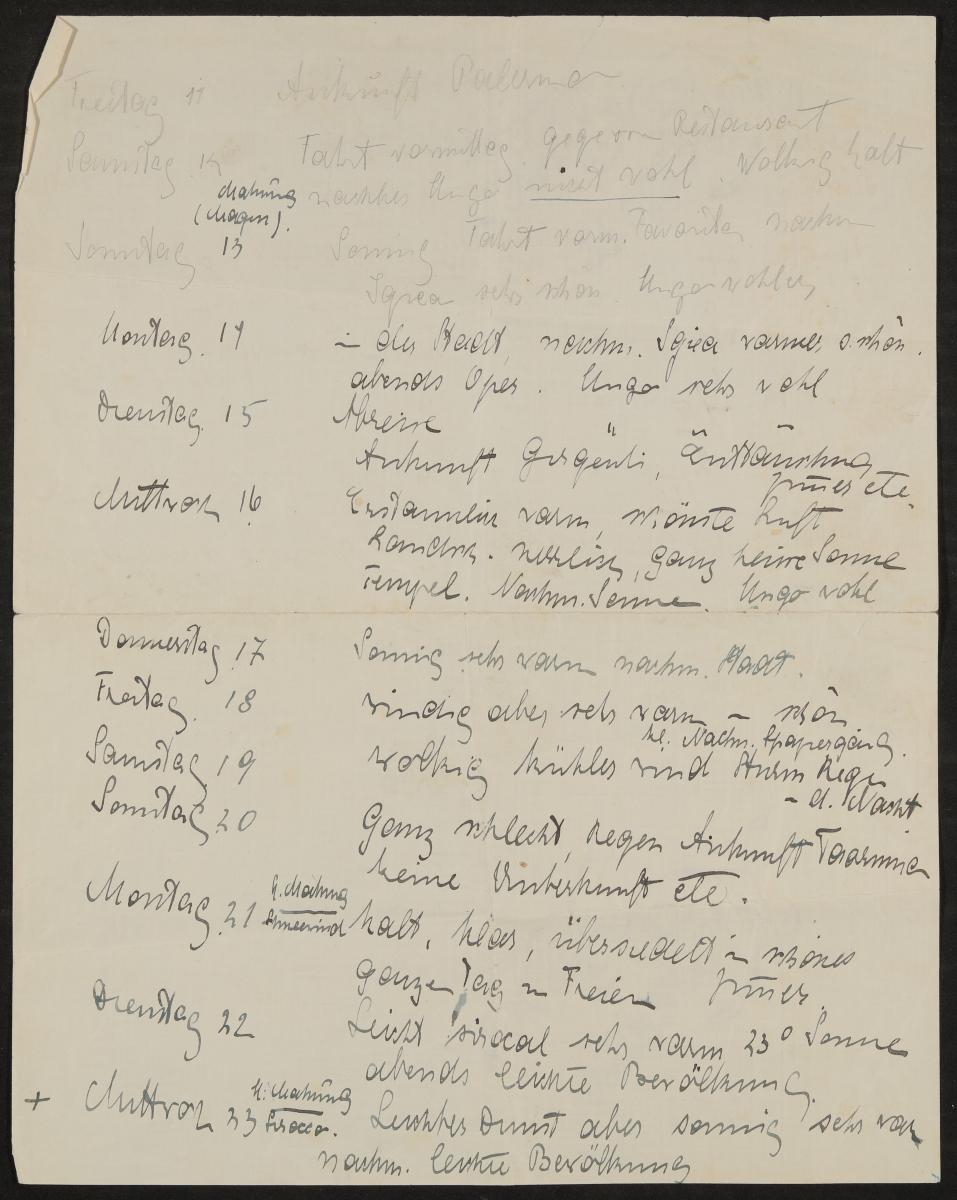 Freitag 11 Ankunft Palermo
Samstag 12 Fahrt vormittag. Restaurant
nachher Ungo nicht wohl. Wolkig kalt
Mahnung
(Magen).
Sonntag 13 Sonnig Fahrt vorm. Favorita, nachm
Igiea sehr schön. Ungo wohler
Montag 14 in der Stadt, nachm. Igiea warmes schön.
abends Oper. Ungo sehr wohl
Dienstag. 15 Abreise
Ankunft Girgenti, Enttäuschung
Zimmer etc.
Mittwoch 16 Erstaunlich warm, schönste Luft
Landsch. herrlich, ganz heisse Sonne
Tempel. Nachm. Sonne. Ungo wohl
Donnerstag 17 Sonnig sehr warm nachm. Stadt.
Freitag 18 windig aber sehr warm – schön
kl. Nachm. Spaziergang.
Samstag 19 wolkig kühler Wind Sturm Regen
i. d. Nacht
Sonntag 20 Ganz schlecht, Regen Ankunft Taormina
keine Unterkunft etc.
Montag 21 k. Mahnung
Schneewind
kalt, klar, übersiedelt in schönes
Ganzen Tag im Freien Zimmer.
Dienstag 22 Leicht sirocal sehr warm 23° Sonne
abends leichte Bevölkung.
+ Mittwoch 23 k. Mahnung
Sirocco.
Leichter Dunst aber sonnig sehr warm
nachm. leichte Bevölkung